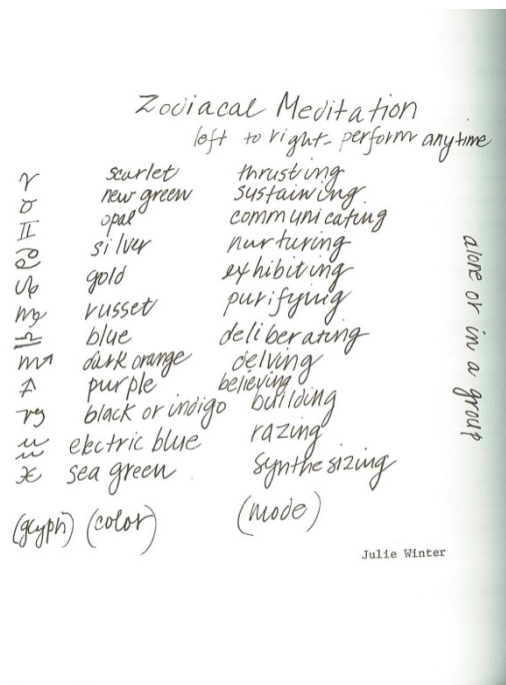 Zodiacal Meditation
left to right - perform anytime
♈ scarlet thrusting
♉ new green sustaining
♊ opal communicating
♋ silver nurturing
♌ gold exhibiting
♍ russet purifying
♎ blue deliberating
♏ dark orange delving
♐ purple believing
♑ black or indigo building
♒ electric blue razing
♓ sea green synthesizing
(glyph) (color) (mode)
alone or in a group
Julie Winter